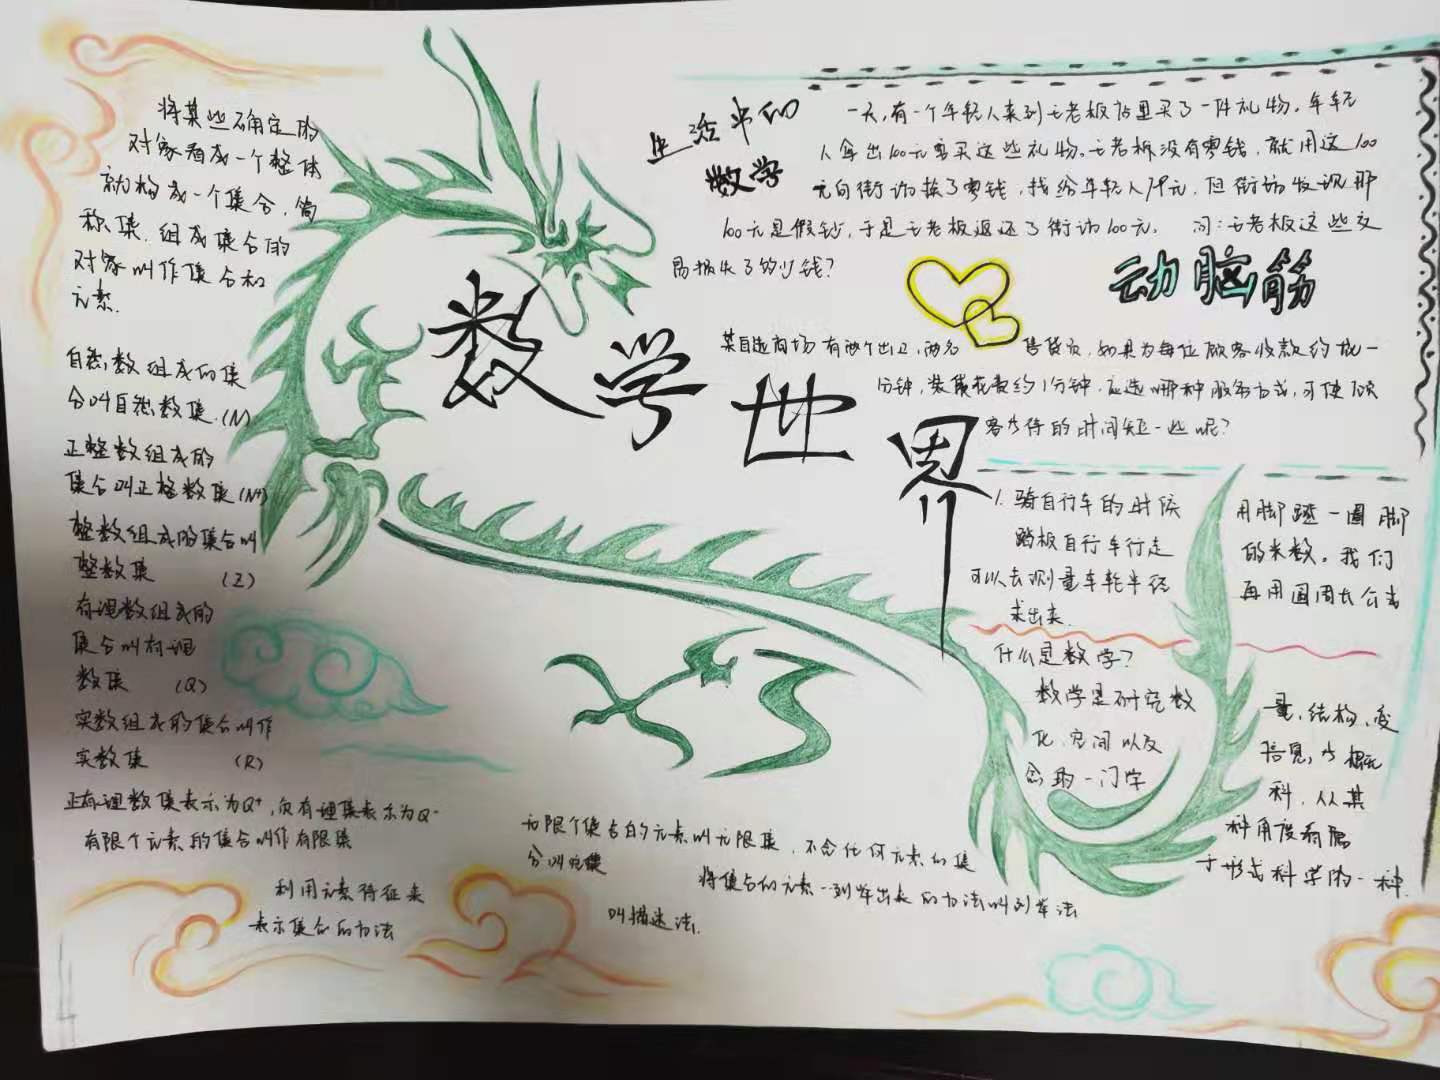 将某些确定的
对象看成一个整体
就构成一个集合,简
称集.组成集合的
对象叫作集合和
元素.
自然数组成的集
合叫自然数集(N)
正整数组成的
集合叫正整数集(N+)
整数组成的集合叫
整数集 (Z)
有理数组成的
集合叫有理
数集 (Q)
实数组成的集合叫作
实数集 (R)
正有理数集表示为Q⁺,负有理集表示为Q⁻
有限个元素的集合叫作有限集
利用元素特征来
表示集合的方法
无限个集合的元素叫无限集,不含任何元素的集
合叫空集
将集合的元素一列举出来的方法叫列举法
叫描述法.
数学世界
生活中的
数学
一天,有一个年轻人来到王老板店里买了一件礼物.年轻
人拿出100元要买这些礼物.王老板没有零钱,就用这100
元向街坊换了零钱,找给年轻人79元.但街坊发现那
100元是假钞,于是王老板返还了街坊100元. 问:王老板这些交
易损失了多少钱?
动脑筋
某自选商场有两个出口,两名 售货员,如果为每位顾客收款约成一
1分钟,装袋花费约1分钟.应选哪种服务方式,可使顾
客等待的时间短一些呢?
1.骑自行车的时候 用脚蹬一圈脚
踏板自行车行走 的米数.我们
可以去测量车轮半径 再用圆周长公式
求出来.
什么是数学?
数学是研究数 量,结构,变
化,空间以及 信息,等概
念的一门学 科,从某
科角度看属
于形式科学的一种.